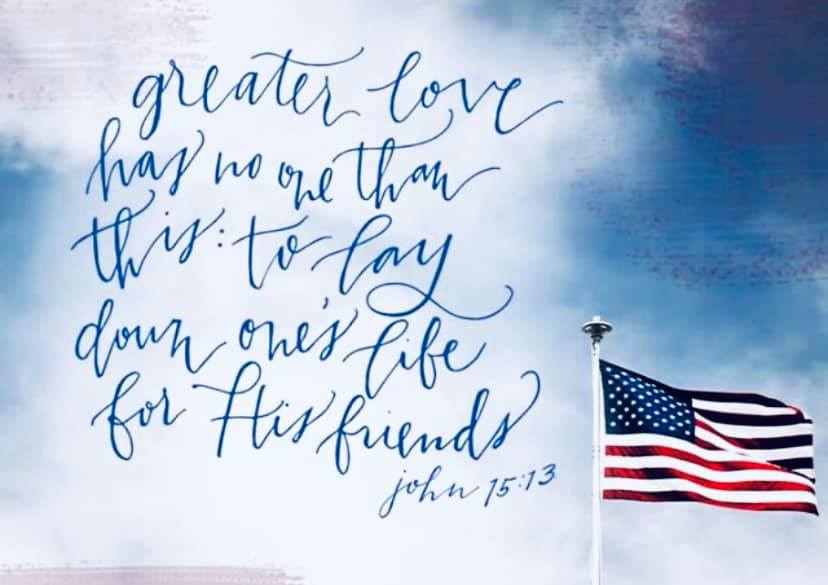 greater love
has no one than
this: to lay
down one's life
for His friends
john 15:13